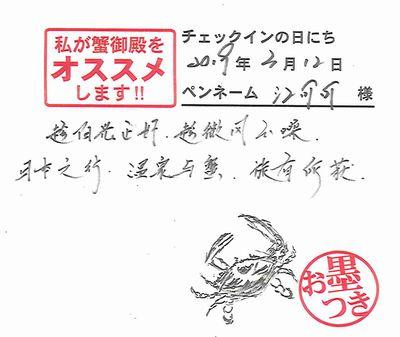 私が蟹御殿を
オススメ
します!!
チェックインの日にち
2019年3月12日
ペンネーム 江可可 様
趁阳光正好.趁微风不噪.
日本之行.温泉与蟹.旅有所获.
お墨つき